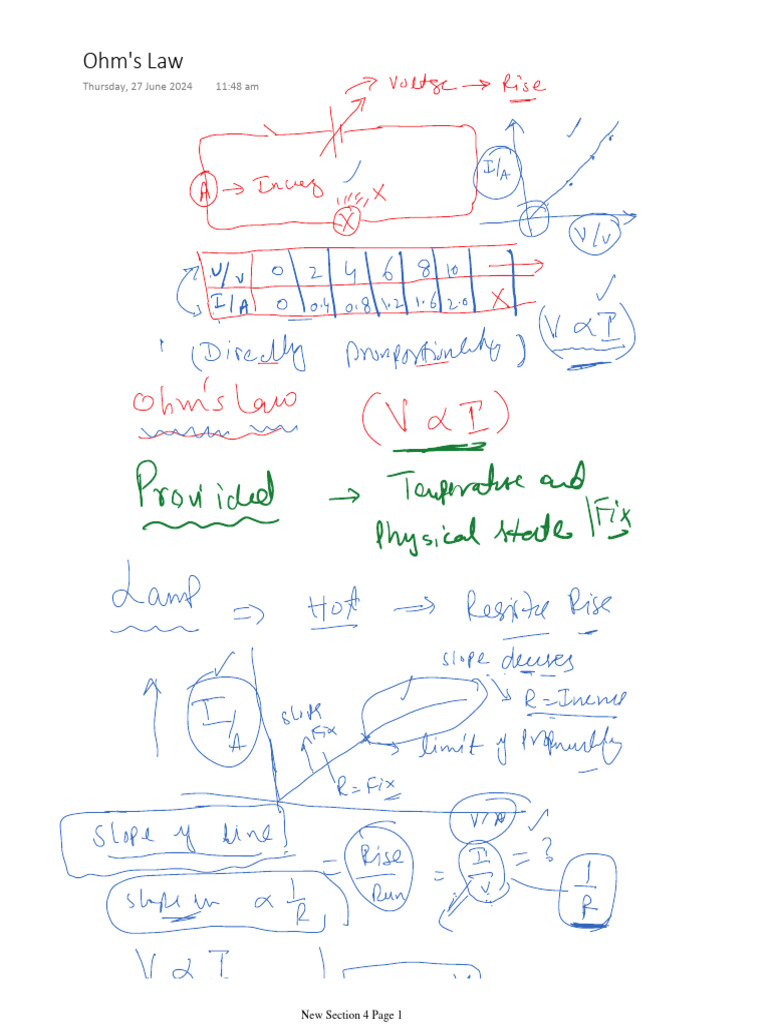 Ohm's Law
Thursday, 27 June 2024 11:48 am
Voltge → Rise
A → Incres X
X
I/A
V/v
V/v 0 2 4 6 8 10
I/A 0 0.4 0.8 1.2 1.6 2.0 X
(Directly Proportionality) (V ∝ I)
Ohm's Law (V ∝ I)
Provided → Temperature and
Physical state Fix
Lamp ⇒ Hot → Resiste Rise
slope decreses
R = Increse
I/A
slope
Fix
→ limit of Proportionality
R = Fix
V/v
Slope of line
= Rise/Run = I/V = ?
1/R
slope ∝ 1/R
V ∝ I
New Section 4 Page 1